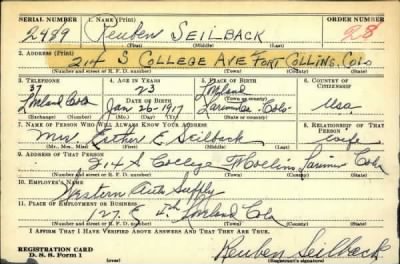 SERIAL NUMBER 1. NAME (Print) ORDER NUMBER
2489 Reuben SEILBACK
(First) (Middle) (Last)
2. ADDRESS (Print)
214 S COLLEGE AVE FORT COLLINS, COLO
(Number and street or R. F. D. number) (Town) (County) (State)
3. TELEPHONE 4. AGE IN YEARS 5. PLACE OF BIRTH 6. COUNTRY OF CITIZENSHIP
37 23 Loveland
Loveland Colo DATE OF BIRTH (Town or county) USA
Jan 26-1917 Larimer - Colo-
(Exchange) (Number) (Mo.) (Day) (Yr.) (State or country)
7. NAME OF PERSON WHO WILL ALWAYS KNOW YOUR ADDRESS 8. RELATIONSHIP OF THAT PERSON
Mrs Esther E Seilback wife
(Mr., Mrs., Miss) (First) (Middle) (Last)
9. ADDRESS OF THAT PERSON
214 S College Ft Collins Larimer Colo
(Number and street or R. F. D. number) (Town) (County) (State)
10. EMPLOYER'S NAME
Western Auto Supply
11. PLACE OF EMPLOYMENT OR BUSINESS
127 E 4th Loveland Colo
(Number and street or R. F. D. number) (Town) (County) (State)
I AFFIRM THAT I HAVE VERIFIED ABOVE ANSWERS AND THAT THEY ARE TRUE.
REGISTRATION CARD Reuben Seilback
D. S. S. Form 1 (over) (Registrant's signature)